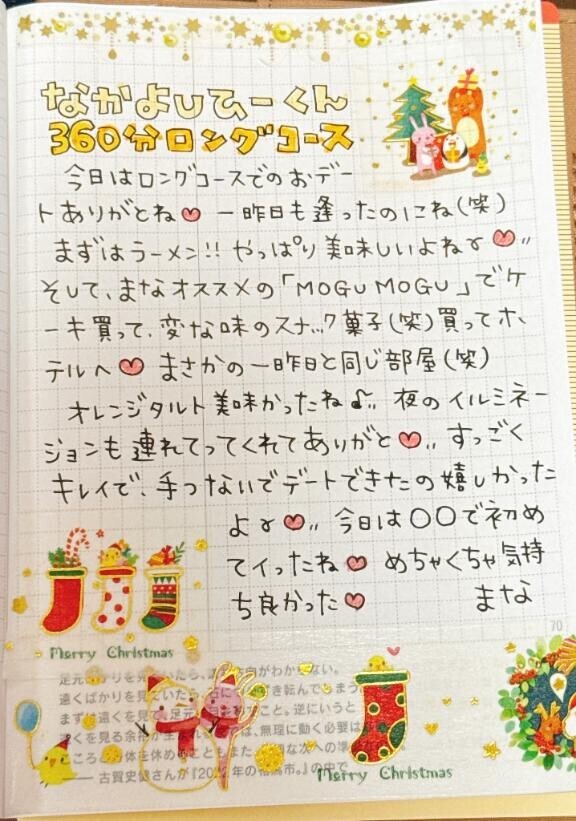 なかよしひーくん
360分ロングコース
今日はロングコースでのおデー
トありがとね♥ 一昨日も逢ったのにね(笑)
まずはラーメン!! やっぱり美味しいよねຯ♥〃
そして、まなオススメの「MOGU MOGU」でケ
ーキ買って、変な味のスナック菓子(笑)買ってホ
テルへ♥ まさかの一昨日と同じ部屋(笑)
オレンジタルト美味かったね♪〃 夜のイルミネー
ションも連れてってくれてありがと♥〃 すっごく
キレイで、手つないでデートできたの嬉しかった
よ♥〃 今日は〇〇で初め
てイったね♥ めちゃくちゃ気持
ち良かった♥ まな
70
Merry Christmas
足元
遠くばかりを見ていたら、
き転んでしまう
まず
遠くを見て、足元
こと。逆にいうと
くを見る余裕が
は、無理に動く必要は
こころ
体を休め
こともまた
な次への準
── 古賀史健さんが『202
年の
市。』の中で
Merry Christmas